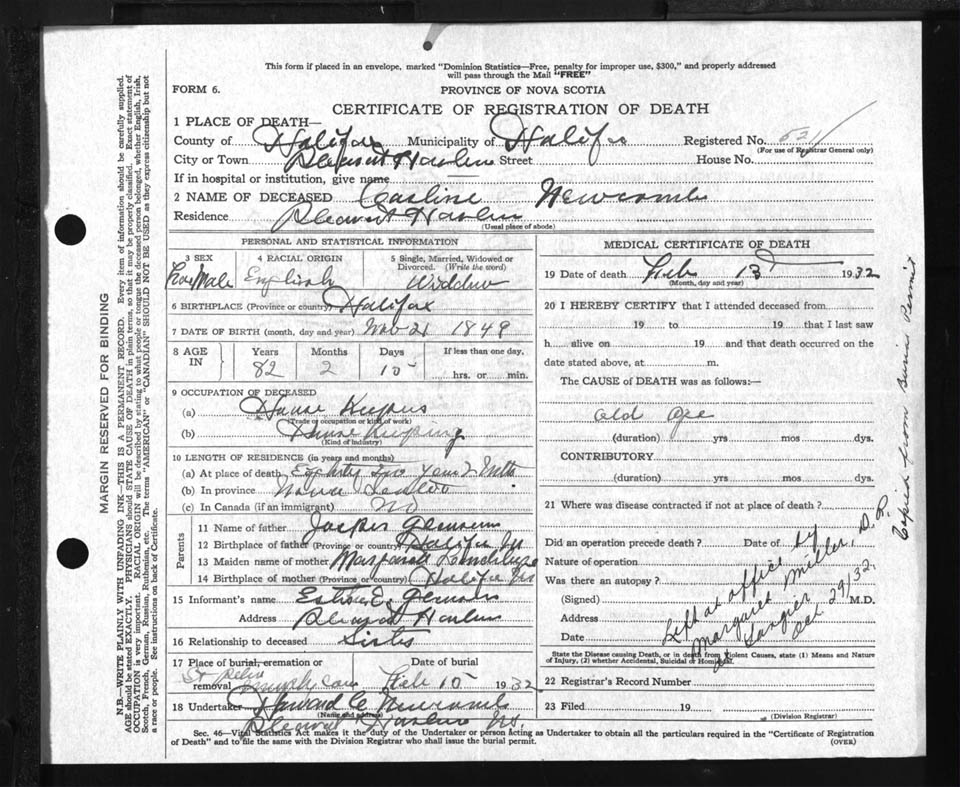 This form if placed in an envelope, marked "Dominion Statistics—Free, penalty for improper use, $300," and properly addressed
will pass through the Mail "FREE"
FORM 6.
PROVINCE OF NOVA SCOTIA
CERTIFICATE OF REGISTRATION OF DEATH
1 PLACE OF DEATH—
County of Halifax Municipality of Halifx Registered No.
(For use of Registrar General only)
City or Town Street House No.
If in hospital or institution, give name
2 NAME OF DECEASED Casline Newcomb
Residence
(Usual place of abode)
PERSONAL AND STATISTICAL INFORMATION
3 SEX 4 RACIAL ORIGIN 5 Single, Married, Widowed or
Divorced. (Write the word)
Male English Widdow
6 BIRTHPLACE (Province or country) Halifax
7 DATE OF BIRTH (month, day and year) Nov 21 1849
8 AGE IN Years Months Days If less than one day,
82 2 hrs. or min.
9 OCCUPATION OF DECEASED
(a) House
(Trade or occupation or kind of work)
(b) House Keeping
(Kind of industry)
10 LENGTH OF RESIDENCE (in years and months)
(a) At place of death
(b) In province Nova
(c) In Canada (if an immigrant) No
Parents
11 Name of father
12 Birthplace of father (Province or country) Halifax NS
13 Maiden name of mother Margaret
14 Birthplace of mother (Province or country) Halifax NS
15 Informant's name
Address
16 Relationship to deceased Sister
17 Place of burial, cremation or
removal Date of burial
Feb 15 1932
18 Undertaker Howard Newcomb
(Name and address)
NS.
MEDICAL CERTIFICATE OF DEATH
19 Date of death Feb 13 1932
(Month, day and year)
20 I HEREBY CERTIFY that I attended deceased from
19 to 19 that I last saw
h alive on 19 and that death occurred on the
date stated above, at m.
The CAUSE of DEATH was as follows:—
old age
(duration) yrs mos dys.
CONTRIBUTORY
(duration) yrs mos dys.
21 Where was disease contracted if not at place of death?
Did an operation precede death? Date of
Nature of operation
Was there an autopsy?
(Signed) M.D.
Address
Date
Left at office by
Margaret Miller, D.R.
Tangier
Oct 29/32
State the Disease causing Death, or in death from Violent Causes, state (1) Means and Nature
of Injury, (2) whether Accidental, Suicidal or Homicidal.
22 Registrar's Record Number
23 Filed 19
(Division Registrar)
Sec. 46—Vital Statistics Act makes it the duty of the Undertaker or person acting as Undertaker to obtain all the particulars required in the "Certificate of Registration
of Death" and to file the same with the Division Registrar who shall issue the burial permit. (OVER)
Copied from Burial Permit
MARGIN RESERVED FOR BINDING
N.B.—WRITE PLAINLY WITH UNFADING INK—THIS IS A PERMANENT RECORD. Every item of information should be carefully supplied.
AGE should be stated EXACTLY. PHYSICIANS should STATE CAUSE OF DEATH in plain terms, so that it may be properly classified. Exact statement of
OCCUPATION is very important. RACIAL ORIGIN will be described by stating to what people or tongue the deceased person belonged, whether English, Irish,
Scotch, French, German, Russian, Ruthenian, etc. The terms "AMERICAN" or "CANADIAN" SHOULD NOT BE USED as they express citizenship but not
a race or people. See instructions on back of Certificate.